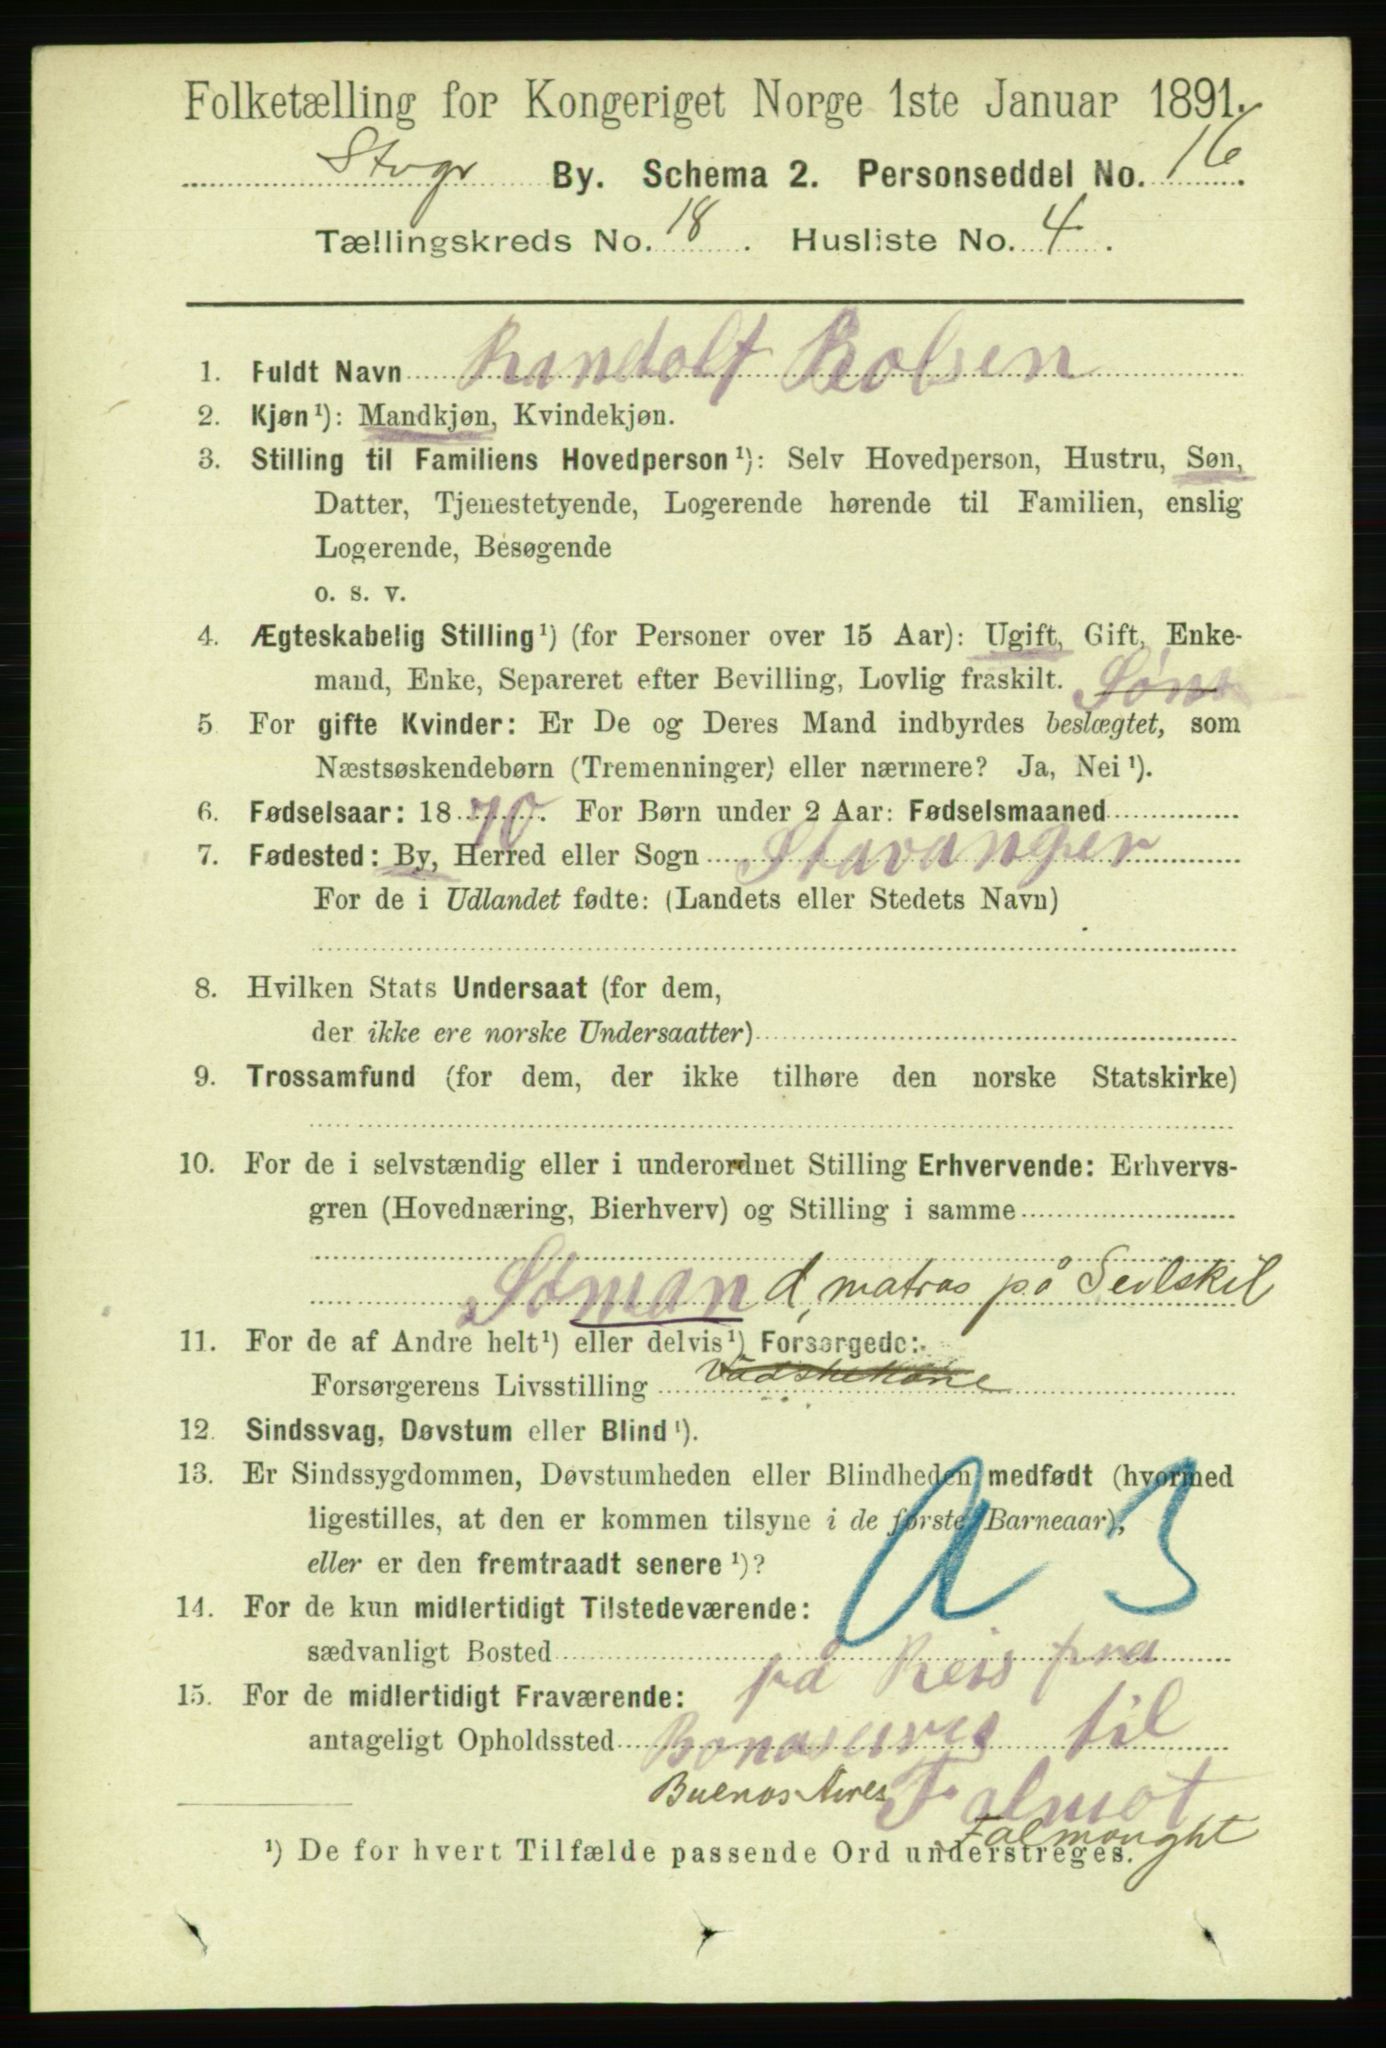 Folketælling for Kongeriget Norge 1ste Januar 1891.
Stvgr By. Schema 2. Personseddel No. 16.
Tællingskreds No. 18. Husliste No. 4.
1. Fuldt Navn Randolf Rolsen
2. Kjøn¹): Mandkjøn, Kvindekjøn.
3. Stilling til Familiens Hovedperson¹): Selv Hovedperson, Hustru, Søn,
Datter, Tjenestetyende, Logerende hørende til Familien, enslig
Logerende, Besøgende
o. s. v.
4. Ægteskabelig Stilling¹) (for Personer over 15 Aar): Ugift, Gift, Enke-
mand, Enke, Separeret efter Bevilling, Lovlig fraskilt.
5 For gifte Kvinder: Er De og Deres Mand indbyrdes beslægtet, som
Næstsøskendebørn (Tremenninger) eller nærmere? Ja, Nei¹).
6. Fødselsaar: 1870. For Børn under 2 Aar: Fødselsmaaned
7. Fødested: By, Herred eller Sogn Stavanger
For de i Udlandet fødte: (Landets eller Stedets Navn)
8. Hvilken Stats Undersaat (for dem,
der ikke ere norske Undersaatter)
9. Trossamfund (for dem, der ikke tilhøre den norske Statskirke)
10. For de i selvstændig eller i underordnet Stilling Erhvervende: Erhvervs-
gren (Hovednæring, Bierhverv) og Stilling i samme
Sömand, matros på Seilskib
11. For de af Andre helt¹) eller delvis¹) Forsørgede:
Forsørgerens Livsstilling
12. Sindssvag, Døvstum eller Blind¹).
13. Er Sindssygdommen, Døvstumheden eller Blindheden medfødt (hvormed
ligestilles, at den er kommen tilsyne i de første Barneaar),
eller er den fremtraadt senere¹)?
14. For de kun midlertidigt Tilstedeværende:
sædvanligt Bosted
15. For de midlertidigt Fraværende: på Reis fra
antageligt Opholdssted Bonasaires til
Buenos Aires Falmot
Falmought
¹) De for hvert Tilfælde passende Ord understreges.